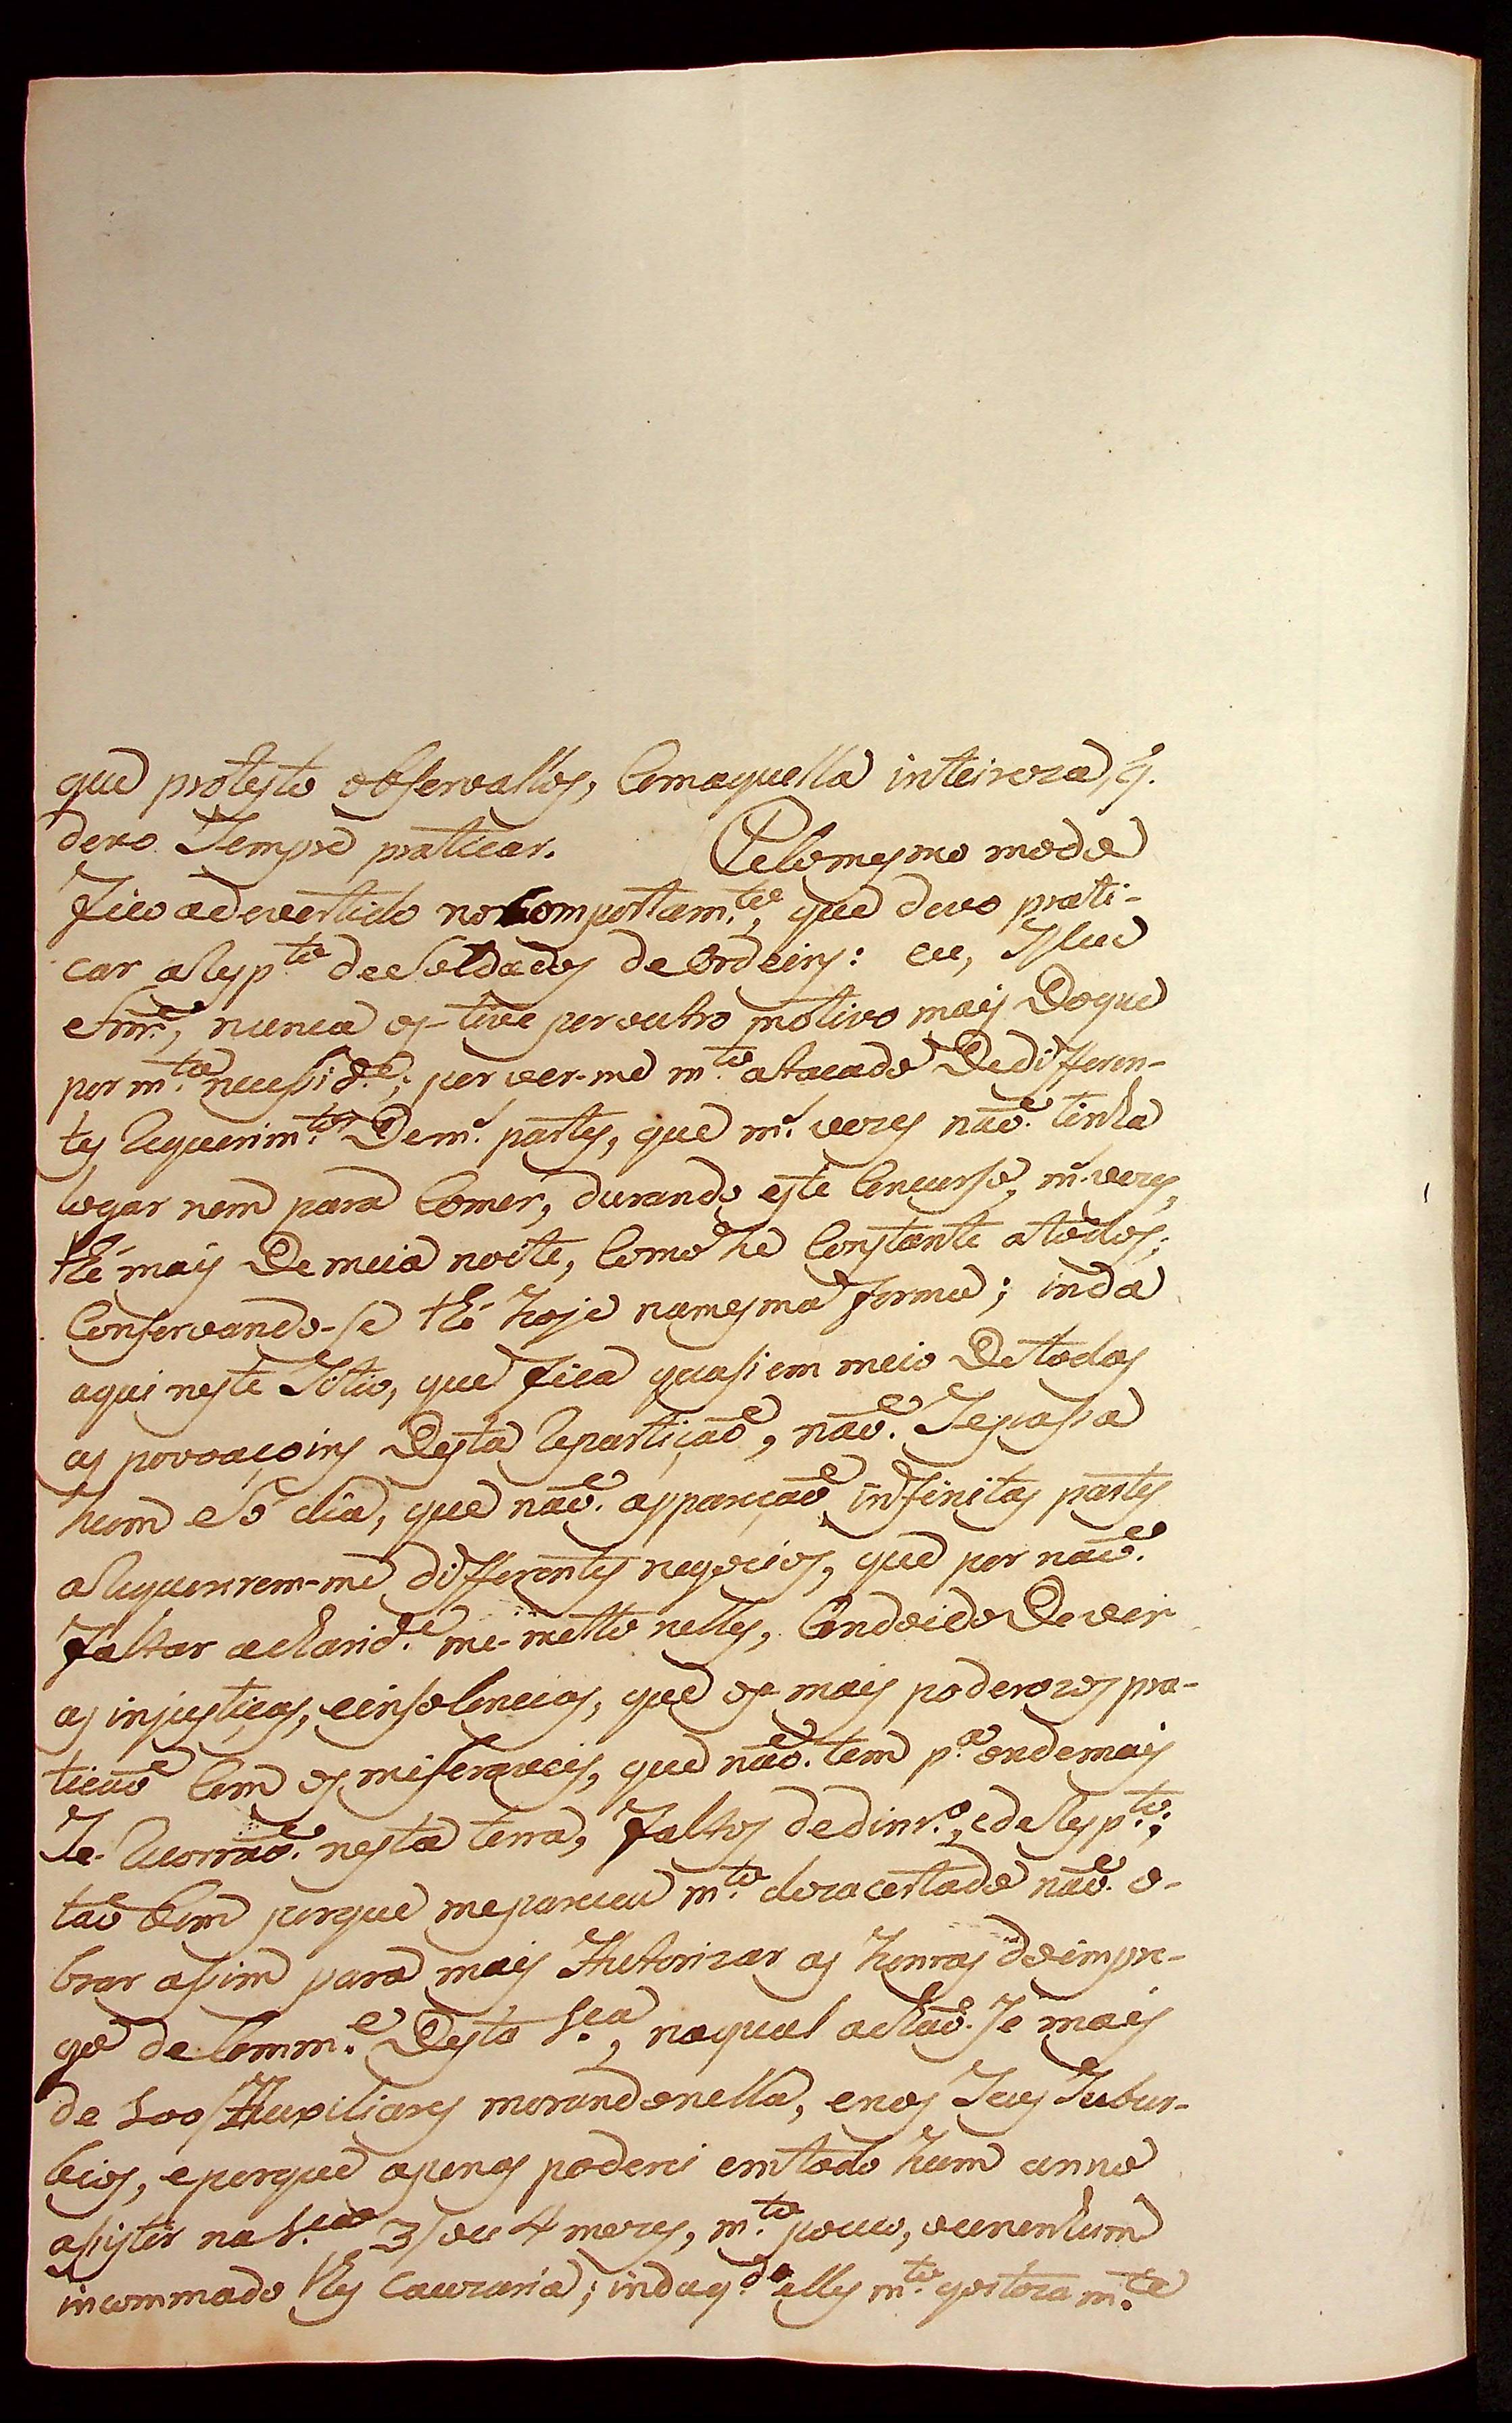 que protesto observallos, Comaquella inteireza, q̃.
devo Sempre praticar. Pelomesmo modo
fico advertido noComportam.to, que devo prati-
car aResp.to deSoldados deOrdeins: eu, Illus
eSnr.e, nunca os-tive poroutro motivo mais Doque
por m.ta necessid.e; por ver-me m.to atacado Dedifferen-
tes Requerim.tos Dem.s partes, que m.s vezes naõ. tinha
logar nem para Comer, durando este Concurso, m.s vezes,
thé mais Demeia noite, Como he Constante atodos;
Conservando-se thé hoje namesma forma; inda
aqui neste Sitio, que fica quasi em meio Detodas
as povoaçoins Desta Repartiçaõ, naõ. Sepassa
hum eSó dia, que naõ. appareçaõ infinitas partes
aRequererem-me differentes negocios, que por naõ.
faltar acharid.e me-metto nelles, Condoido Dever
as injustiças, einsolencias, que os mais poderozos pra-
ticaõ Com os miseraveis, que naõ. tem p.a ondemais
Se-Recorraõ. nesta terra, faltos dedinr.o, edeResp.to;
taõ bem porque mepareceu m.to dezacertado naõ. o-
brar assim para mais Authorizar as honras doimpre-
go deComm.e Desta V.ca, naqual achaõ. Se mais
de 500/Auxiliares morandonella, enos Seus Subur-
bios, eporque apenas poderei emtodo hum anno
assistir na V.ca 3/ou 4 mezes, m.to pouco, ounenhum
incommodo lhes cauzaria; indaq.do elles m.to gostozam.te